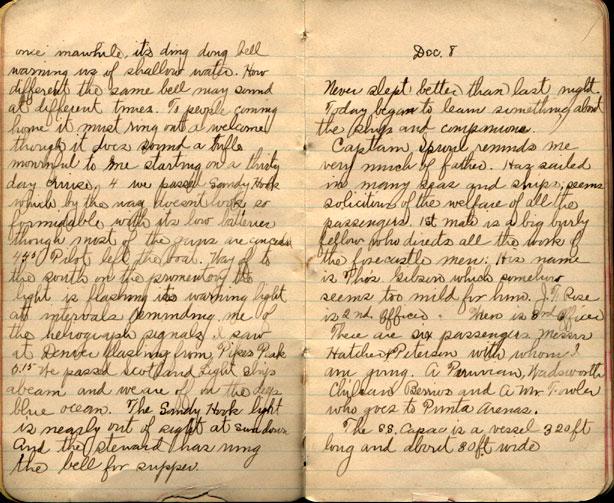 once inawhile, its ding dong bell
warning us of shallow water. How
different the same bell may sound
at different times. To people coming
home it must ring out a welcome
though it does sound a trifle
mournful to me starting on a thirty
day cruise. 4 we passed Sandy Hook
which by the way doesnt look so
formidable with its low batteries
though most of the guns are
Pilot left the boat. Way of to
the south on the promentory the
light is flashing its warning light
at intervals reminding me of
the heliograph signals I saw
at Denver flashing from Pikes Peak
We passed Scotland Light Ship
abeam and we are of on the deep
blue ocean. The Sandy Hook light
is nearly out of sight at sundown
And the steward has rung
the bell for supper.
Dec. 8
Never slept better than last night.
Today began to learn something about
the ships and companions.
Captain reminds me
very much of father. Has sailed
in many seas and ships, seems
solicitous of the welfare of all the
passengers. 1st mate is a big burly
fellow who directs all the work of
the forecastle men. His name
is Thos. Gibson which somehow
seems too mild for him. J. F. Rose
is 2nd Officer. is 3rd Officer
There are six passengers Messrs
Hatcher & Peterson with whom I
am going. A Peruvian, Wadsworth
Chilean Berrios and a Mr. Fowler
who goes to Punta Arenas.
The SS. Capac is a vessel 320 ft
long and about 30 ft wide